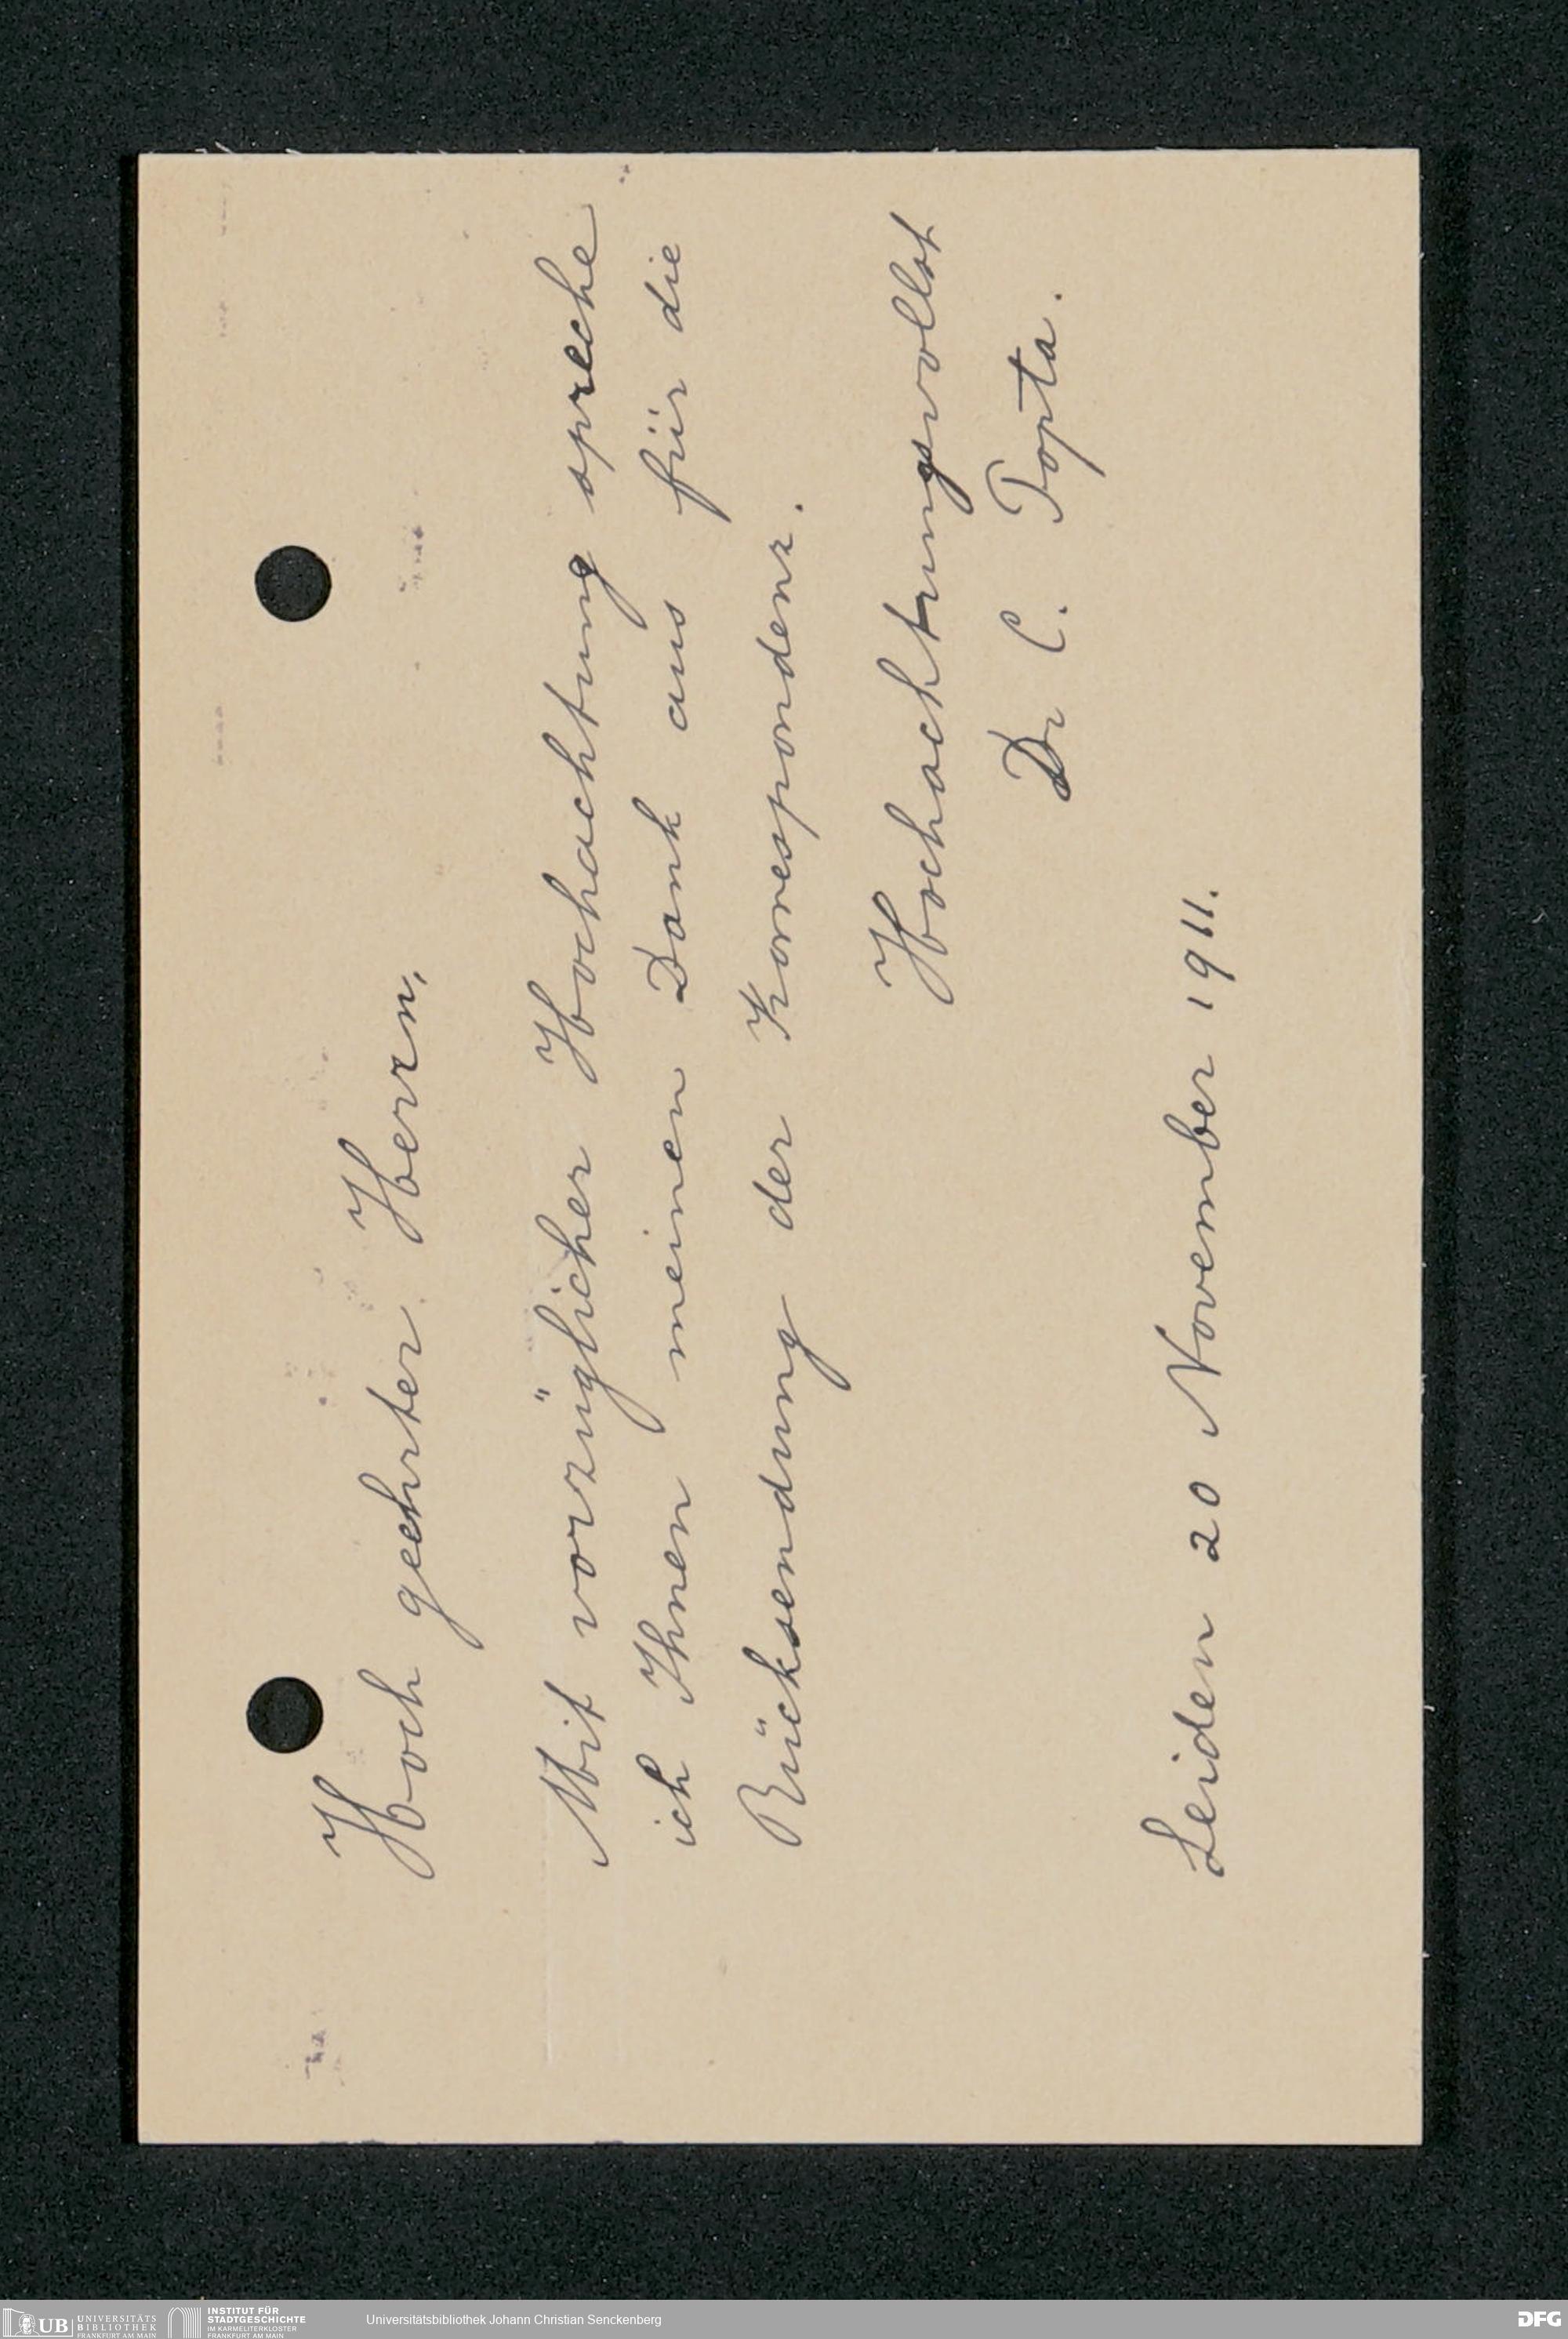 Hoch geehrter Herrn,
Mit vorzüglicher Hochachtung spreche
ich Ihnen meinen Dank aus für die
Rücksendung der Korrespondenz.
Hochachtungsvollst
Dr C. Topta.
Leiden 20 November 1911.
UB UNIVERSITÄTS
BIBLIOTHEK
FRANKFURT AM MAIN
INSTITUT FÜR
STADTGESCHICHTE
IM KARMELITERKLOSTER
FRANKFURT AM MAIN
Universitätsbibliothek Johann Christian Senckenberg
DFG